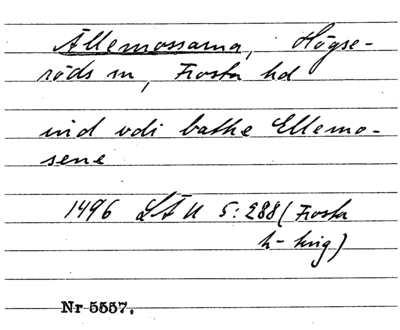 Ällemossarna, Högse-
röds sn, Frosta hd
ind vdi bathe Ellemo-
sene
1496 LÄU 5:288 (Frosta
h-ting)
Nr 5557.